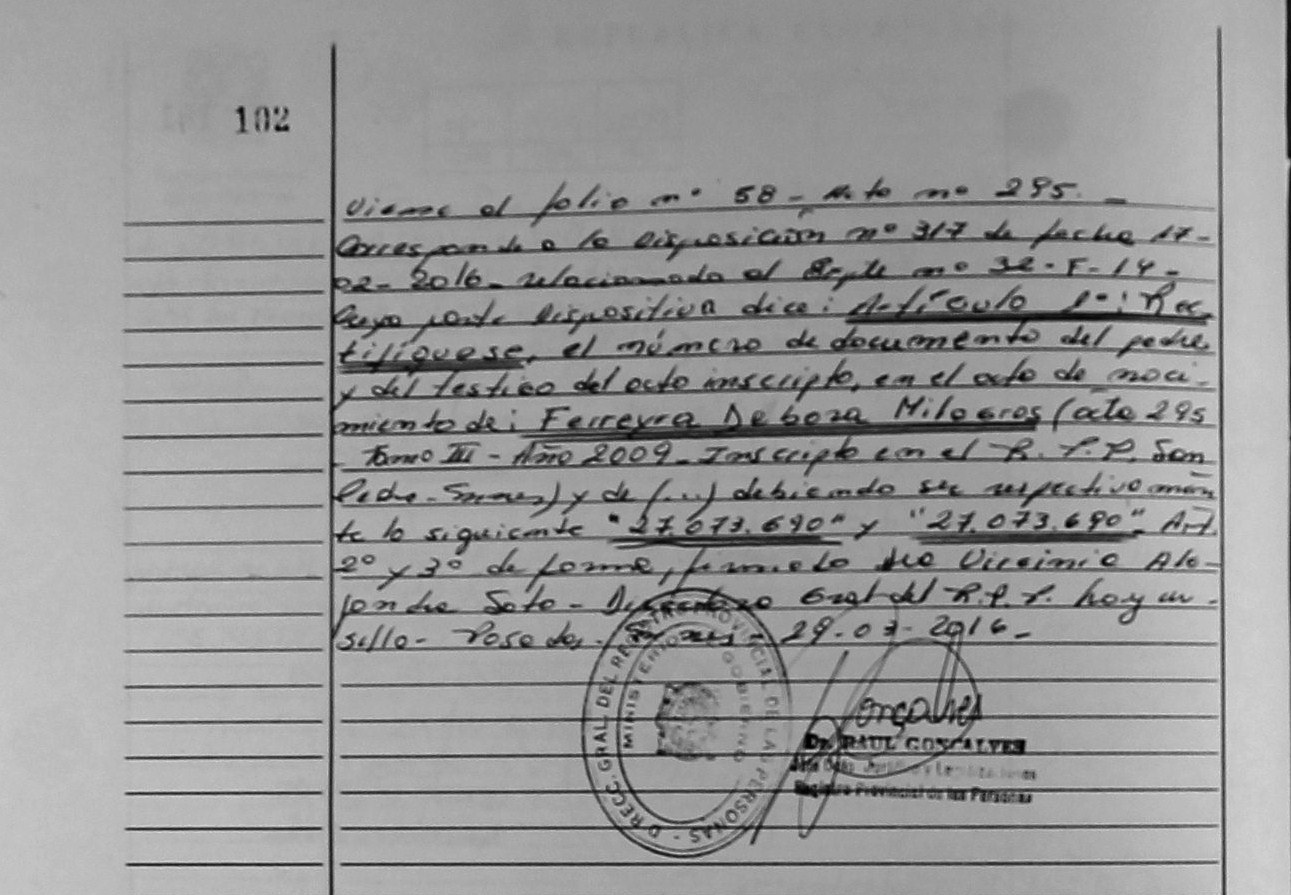 102
Viene al folio nº 58 - Acta nº 295. -
Corresponde a la Disposición nº 317 de fecha 17-
02-2016 - relacionada al Expte nº 32-F-14-
Cuya parte Dispositiva dice: Artículo 1º: Rec
tifíquese, el número de documento del padre
y del testigo del acto inscripto, en el acta de naci-
miento de: Ferreyra Debora Milagros (acta 295
- Tomo III - Año 2009 - Inscripta en el R.P.P. San
Pedro - Mnes) y de (...) debiendo ser respectivamen
te lo siguiente "27.073.690" y "27.073.690" Art.
2º y 3º de forma, firmado Dra Virginia Ale-
jandra Soto - Directora Gral del R.P.P. hay un
sello - Posadas. Mnes - 29-03-2016 -
DIRECC. GRAL. DEL REGISTRO PROVINCIAL DE LAS PERSONAS -
MINISTERIO GOBIERNO
Gonçalves
Dr. RAUL GONCALVES
Registro Provincial de las Personas